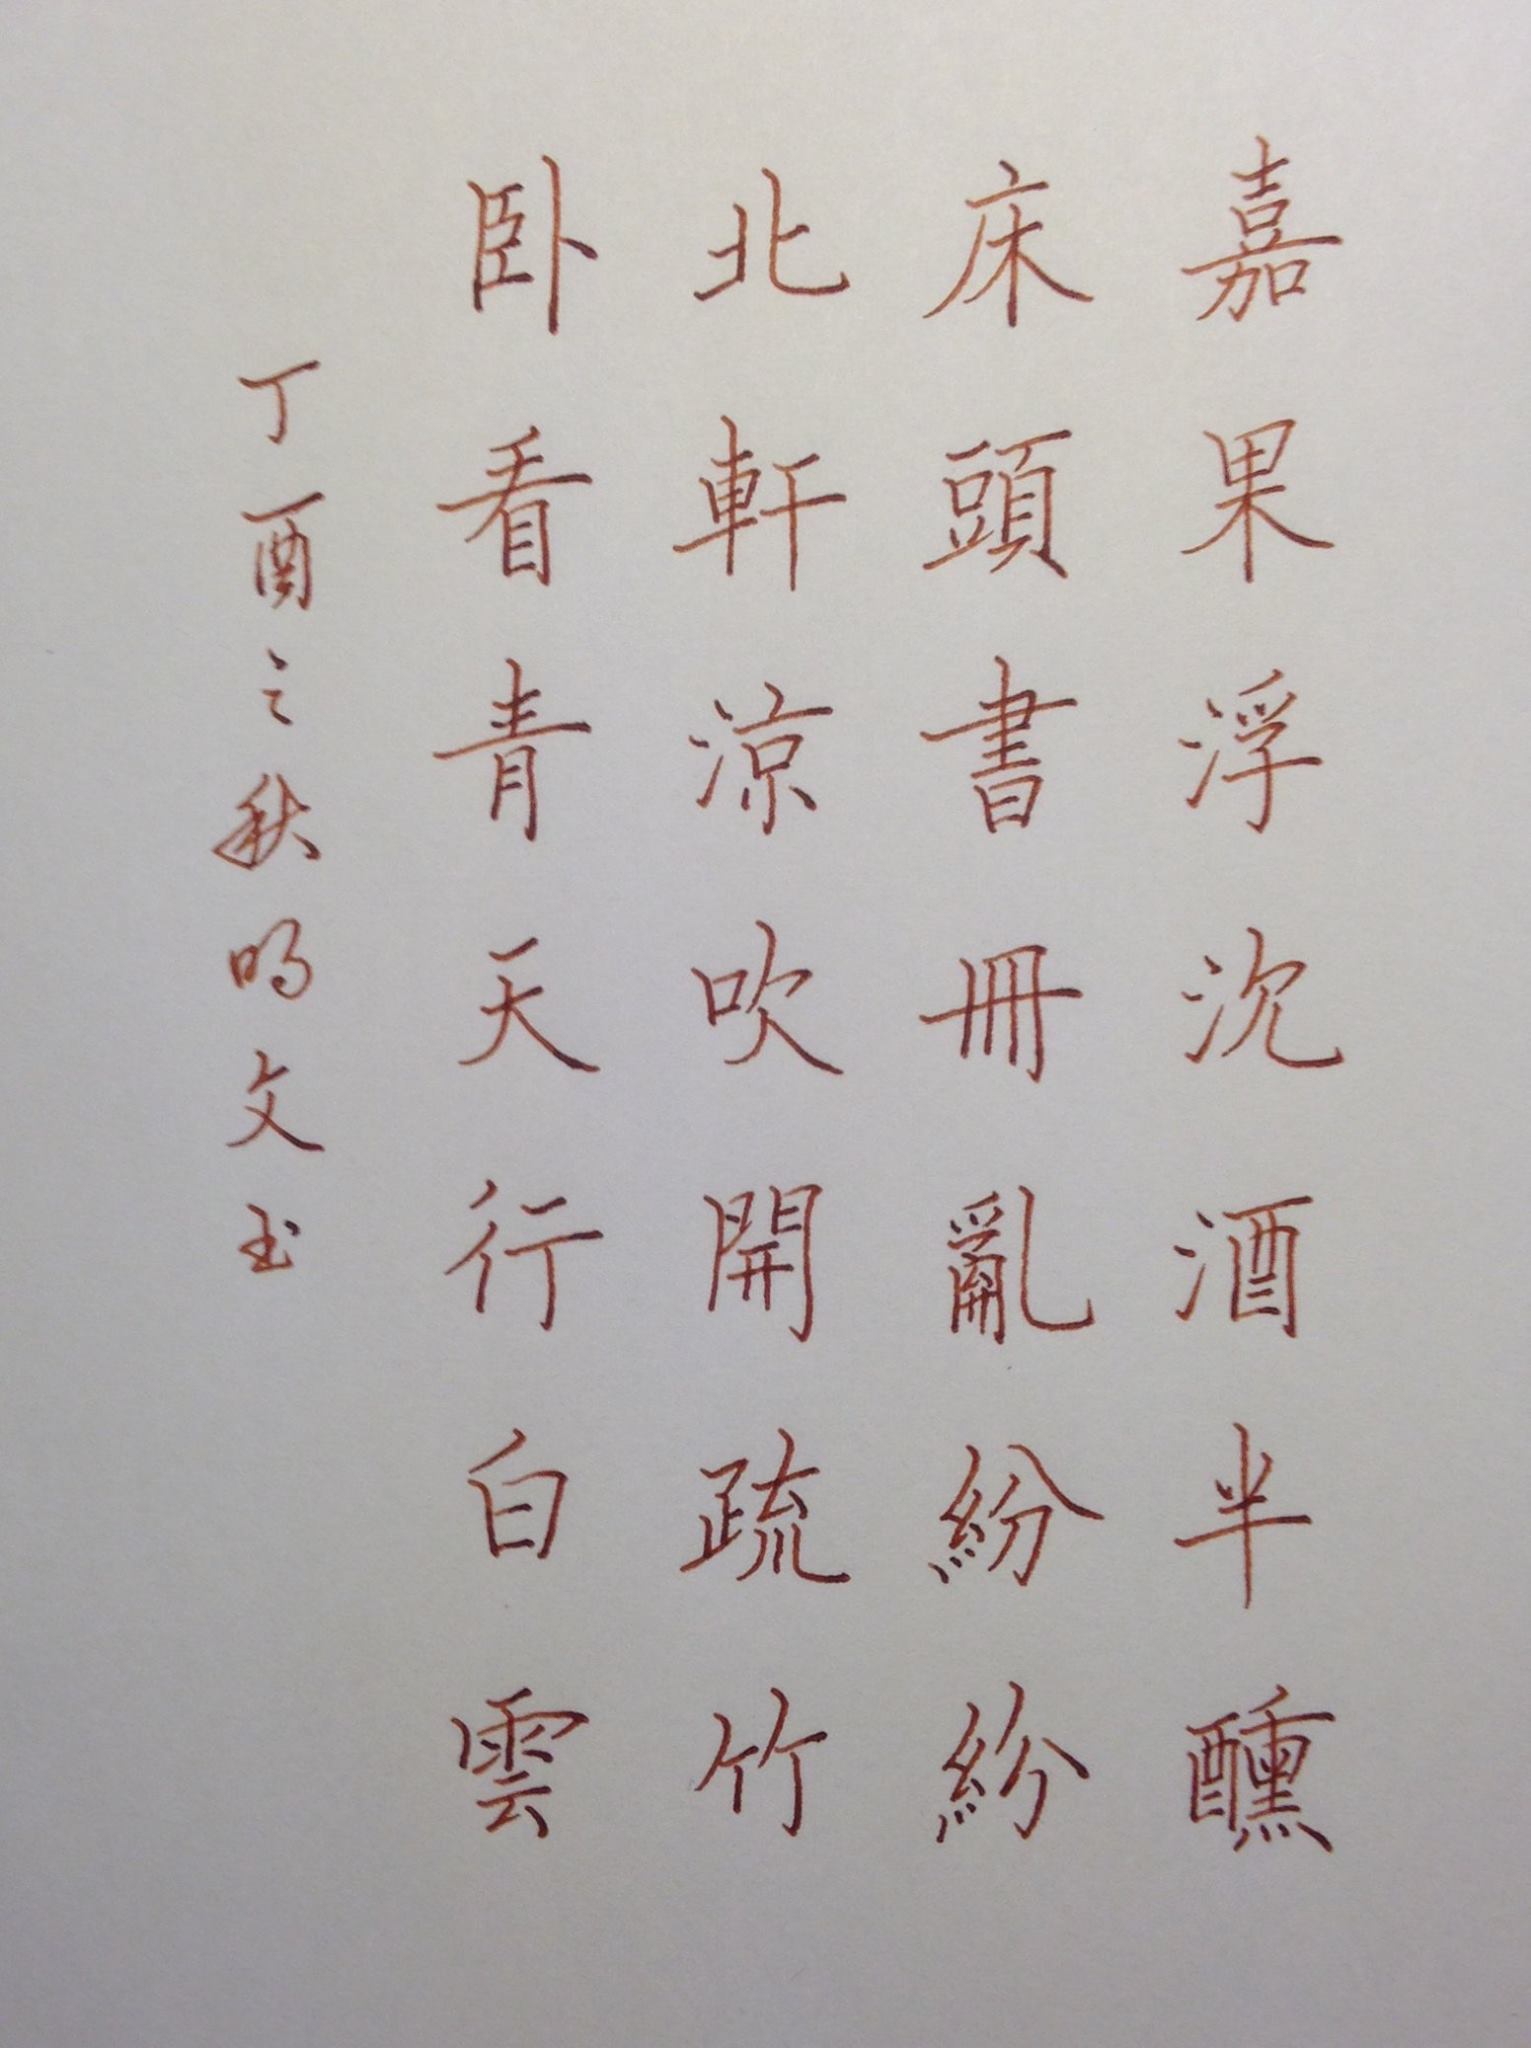 嘉果浮沈酒半醺
床頭書冊亂紛紛
北軒涼吹開疏竹
卧看青天行白雲
丁酉之秋鸣文书